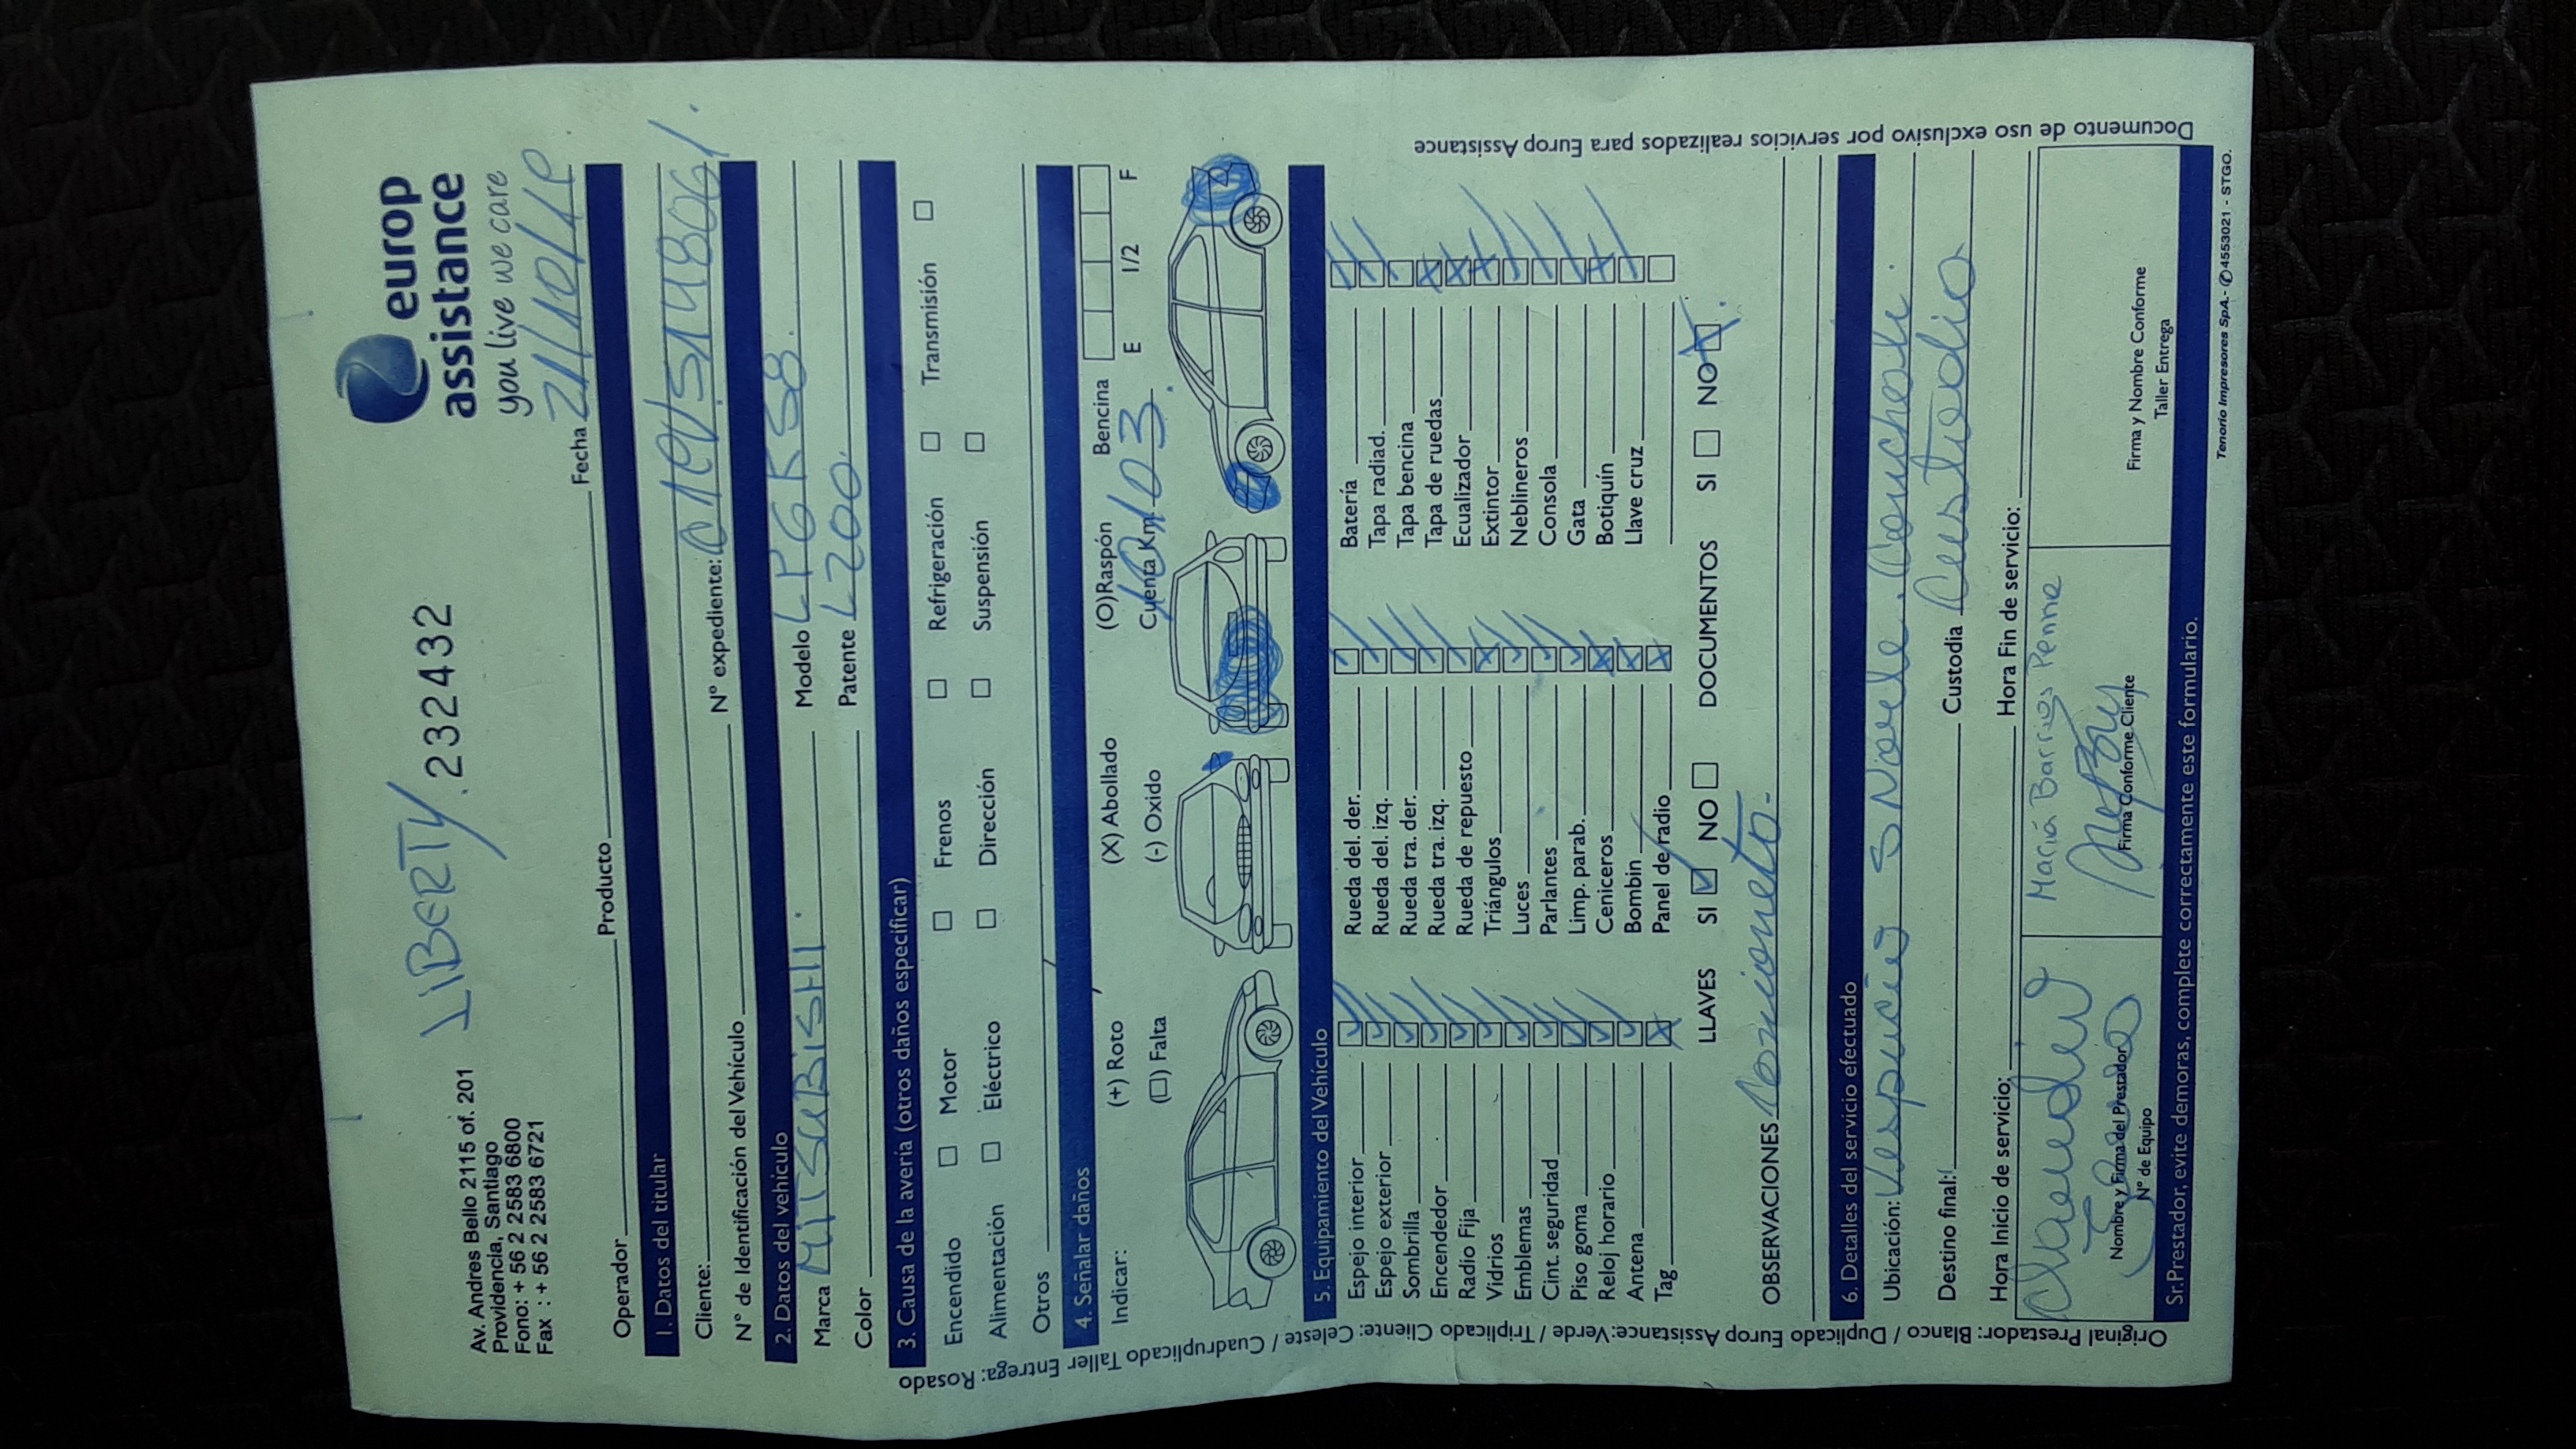 Av. Andres Bello 2115 of. 201
Providencia, Santiago
Fono: + 56 2 2583 6800
Fax : + 56 2 2583 6721
LIBERTY
232432
europ
assistance
you live we care
Operador Producto Fecha 21/10/19
1. Datos del titular
Cliente: N° expediente:
N° de Identificación del Vehículo
2. Datos del vehículo
Marca MITSUBISHI. Modelo LPGK58.
Color Patente L200.
3. Causa de la avería (otros daños especificar)
Encendido Motor Frenos Refrigeración Transmisión
Alimentación Eléctrico Dirección Suspensión
Otros
4. Señalar daños
Indicar: (+) Roto (X) Abollado (O)Raspón Bencina E 1/2 F
(□) Falta (-) Oxido Cuenta Km 10103.
5. Equipamiento del Vehículo
Espejo interior Rueda del. der. Batería
Espejo exterior Rueda del. izq. Tapa radiad.
Sombrilla Rueda tra. der. Tapa bencina
Encendedor Rueda tra. izq. Tapa de ruedas
Radio Fija Rueda de repuesto Ecualizador
Vidrios Triángulos Extintor
Emblemas Luces Neblineros
Cint. seguridad Parlantes Consola
Piso goma Limp. parab. Gata
Reloj horario Ceniceros Botiquín
Antena Bombin Llave cruz
Tag Panel de radio
LLAVES SI NO DOCUMENTOS SI NO
OBSERVACIONES Camioneta.
6. Detalles del servicio efectuado
Ubicación: Vespucio Conchali.
Destino final: Custodia Custodia
Hora Inicio de servicio: Hora Fin de servicio:
María Barrios Penna
Nombre y Firma del Prestador
N° de Equipo
Firma Conforme Cliente
Firma y Nombre Conforme
Taller Entrega
Sr.Prestador, evite demoras, complete correctamente este formulario.
Tenorio Impresores SpA.- ✆4553021 - STGO.
Original Prestador: Blanco / Duplicado Europ Assistance:Verde / Triplicado Cliente: Celeste / Cuadruplicado Taller Entrega: Rosado
Documento de uso exclusivo por servicios realizados para Europ Assistance